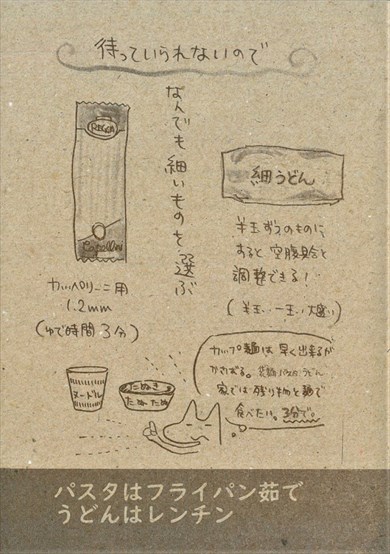 待っていられないので
なんでも細いものを選ぶ
REGGA
Capellini
カッペリーニ用
1.2mm
(ゆで時間3分)
細うどん
半玉ずつのものに
すると空腹具合と
調整できる!
(半玉‥一玉‥大盛い)
カップ麺は早く出来るが
かさばる。
パスタうどん
家では残り物と麺で
食べたい。3分で。
ヌードル
たぬき
たぬたぬ
パスタはフライパン茹で
うどんはレンチン